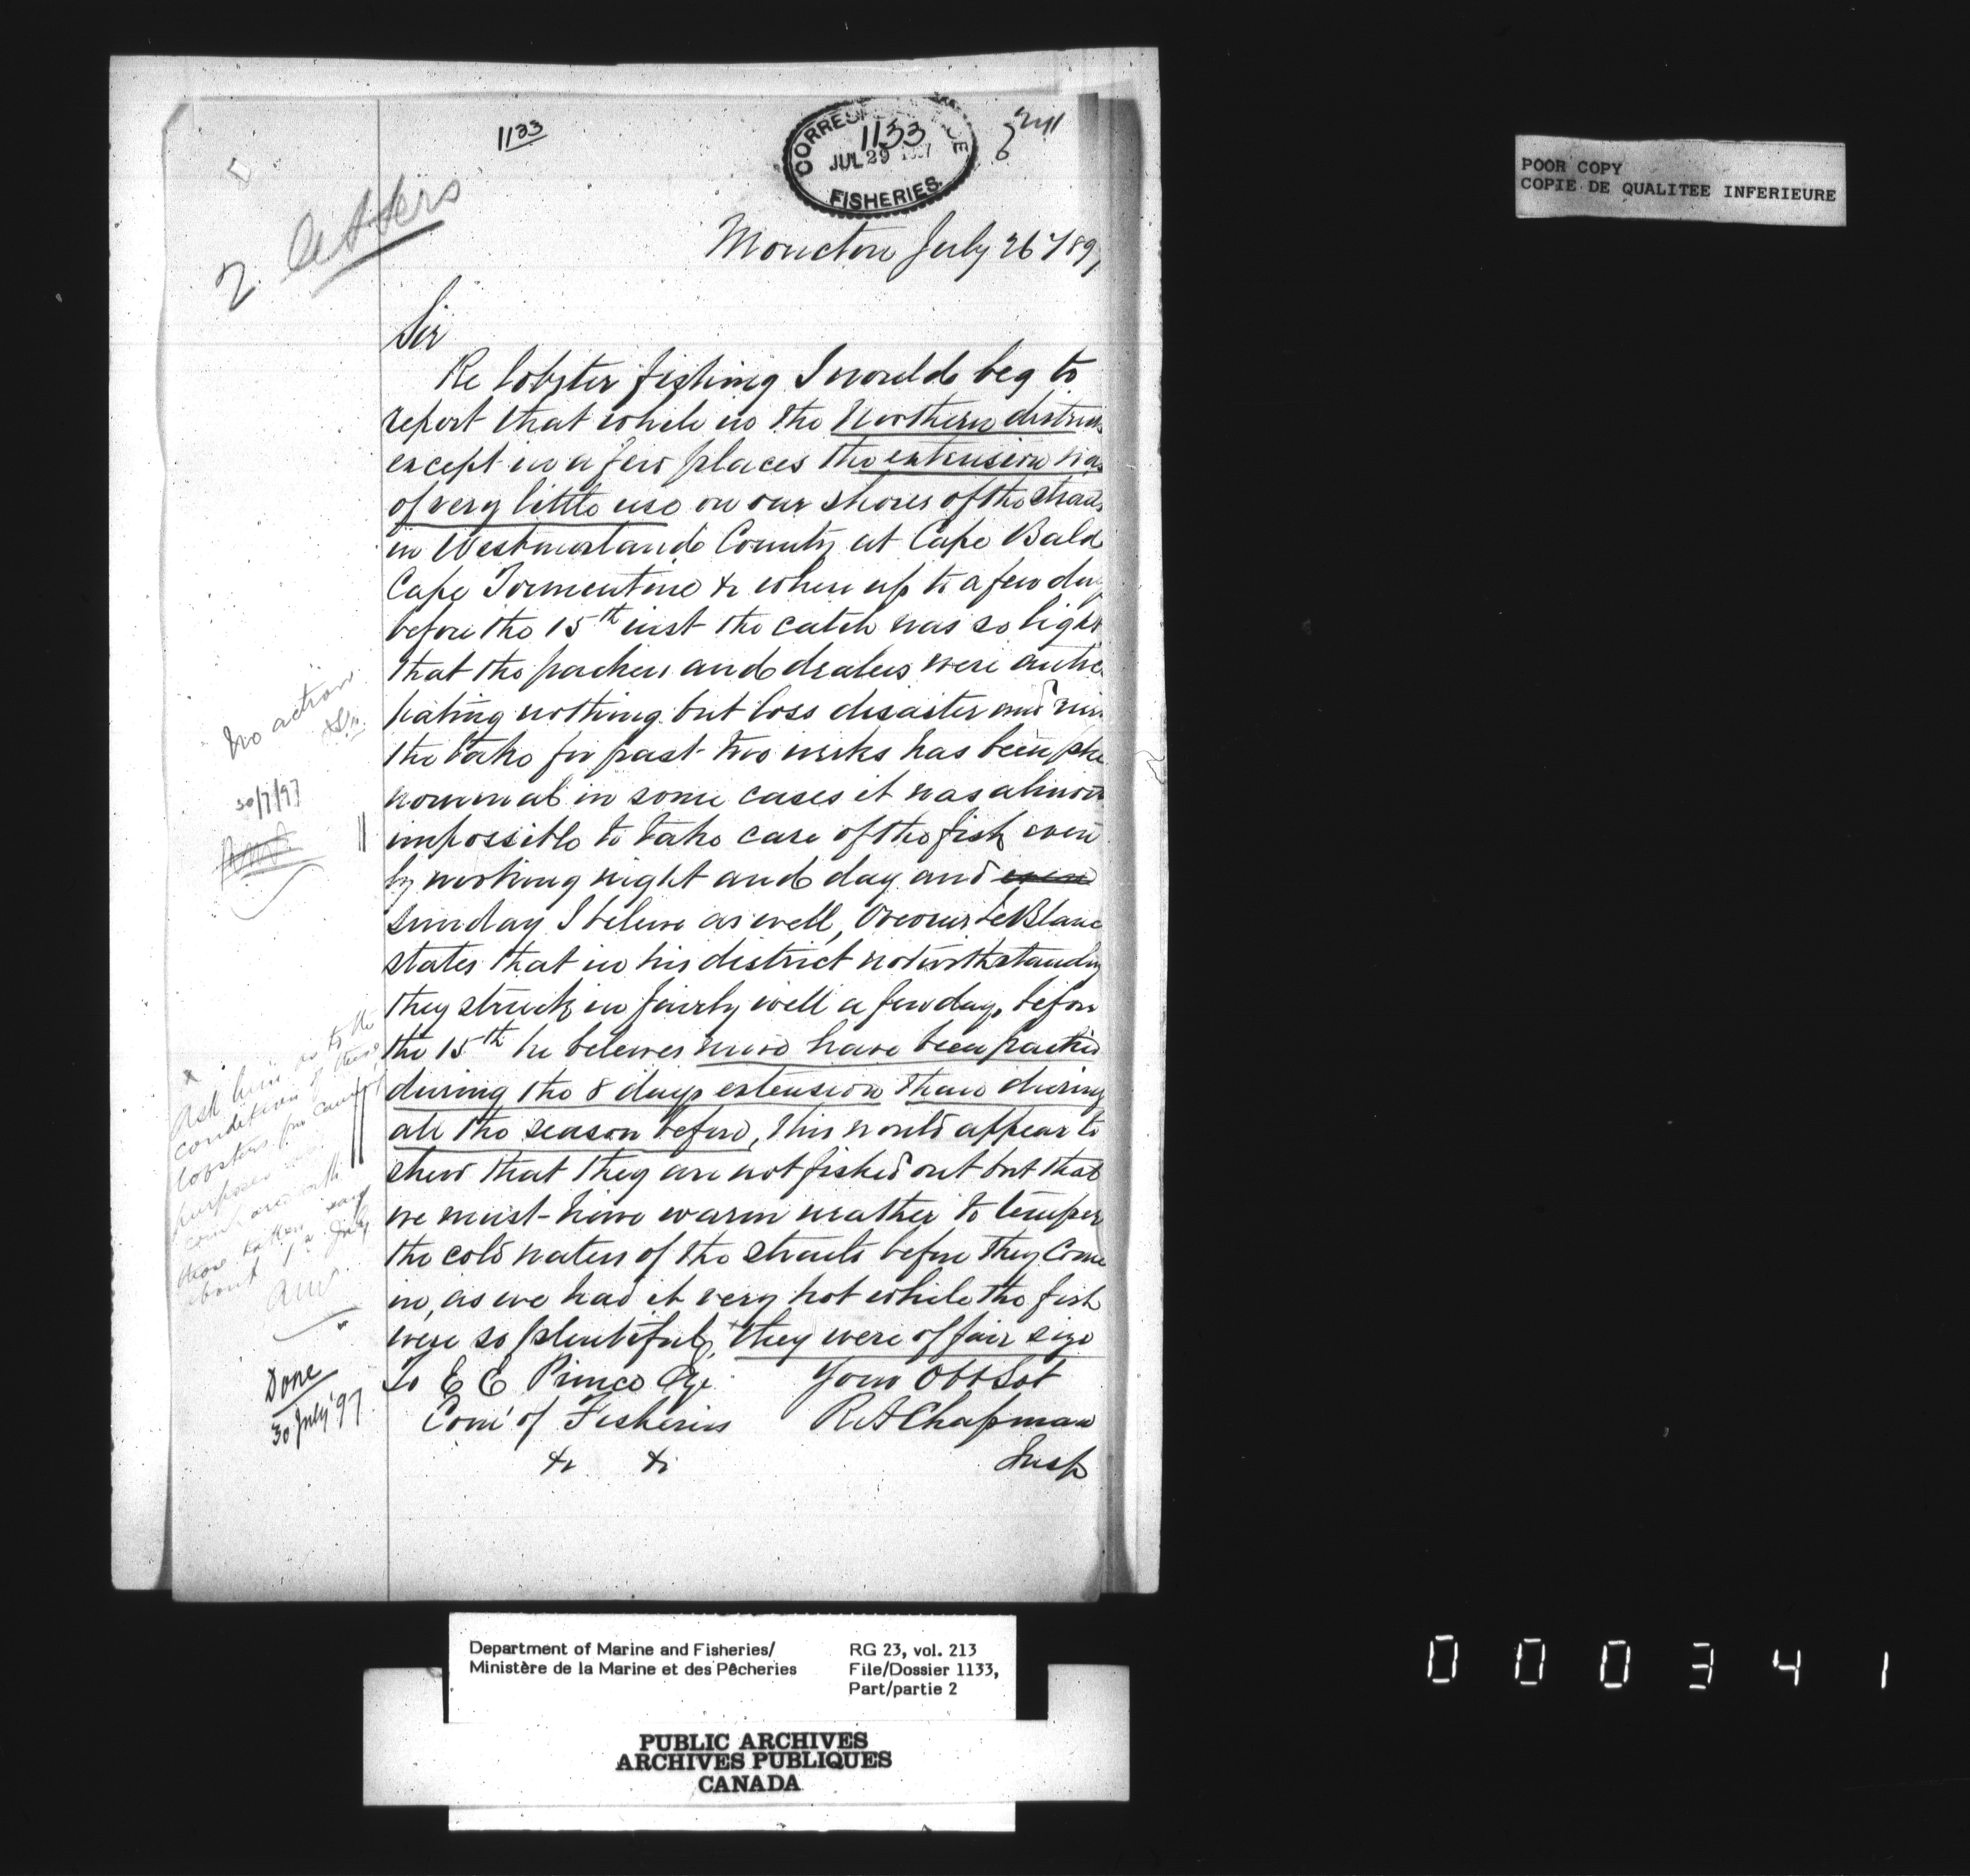 1133
CORRESPONDENCE
1133
JUL 29 1897
FISHERIES
2 letters
Moncton July 26 / 897
Sir
Re lobster fishing I would beg to
report that while in the Northern districts
except in a few places the extension was
of very little use on our shores of the straits
in Westmorland County at Cape Bald
Cape Tormentine &c where up to a few days
before the 15th inst the catch was so light
that the packers and dealers were antici
pating nothing but loss disaster and ruin
the take for past two weeks has been phe
nominal in some cases it was almost
impossible to take care of the fish even
by working night and day and even
sunday I believe as well, Overseer LeBlanc
states that in his district notwithstanding
they struck in fairly well a few days before
the 15th he believes more have been packed
during the 8 days extension than during
all the season before, this would appear to
shew that they are not fished out but that
we must have warm weather to temper
the cold waters of the straits before they come
in, as we had it very hot while the fish
were so plentiful, x they were of fair size
To E E Prince Esq
Your Obt Svt
Com' of Fisheries
R A Chapman
&c &c
Insp
No action
30/7/97
x
Ask him as to the
condition of these
lobsters for canning
purposes
compared with
those taken say
about 1st July
RNV
Done
30 July '97
POOR COPY
COPIE DE QUALITEE INFERIEURE
Department of Marine and Fisheries/
Ministère de la Marine et des Pêcheries
RG 23, vol. 213
File/Dossier 1133,
Part/partie 2
PUBLIC ARCHIVES
ARCHIVES PUBLIQUES
CANADA
000341